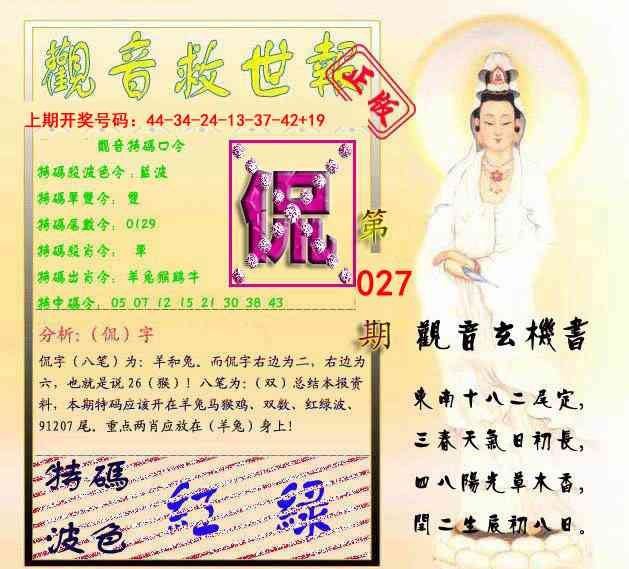 觀音救世報
正版
上期开奖号码：44-34-24-13-37-42+19
觀音特碼口令
特碼殺波色令：藍波
特碼單雙令：雙
特碼尾數令：0129
特碼殺肖令：單
特碼出肖令：羊兔猴鷄牛
特中碼令：05 07 12 15 21 30 38 43
侃
第
027
期
分析：（侃）字
侃字（八笔）为：羊和兔。而侃字右边为二，右边为
六，也就是说 26（猴）！八笔为：（双）总结本报资
料，本期特码应该开在羊兔马猴鸡、双数、红绿波、
91207 尾。重点两肖应放在（羊兔）身上！
特碼
波色
紅 綠
觀音玄機書
東南十八二尾定，
三春天氣日初長，
四八陽光草木香，
閏二生辰初八日。